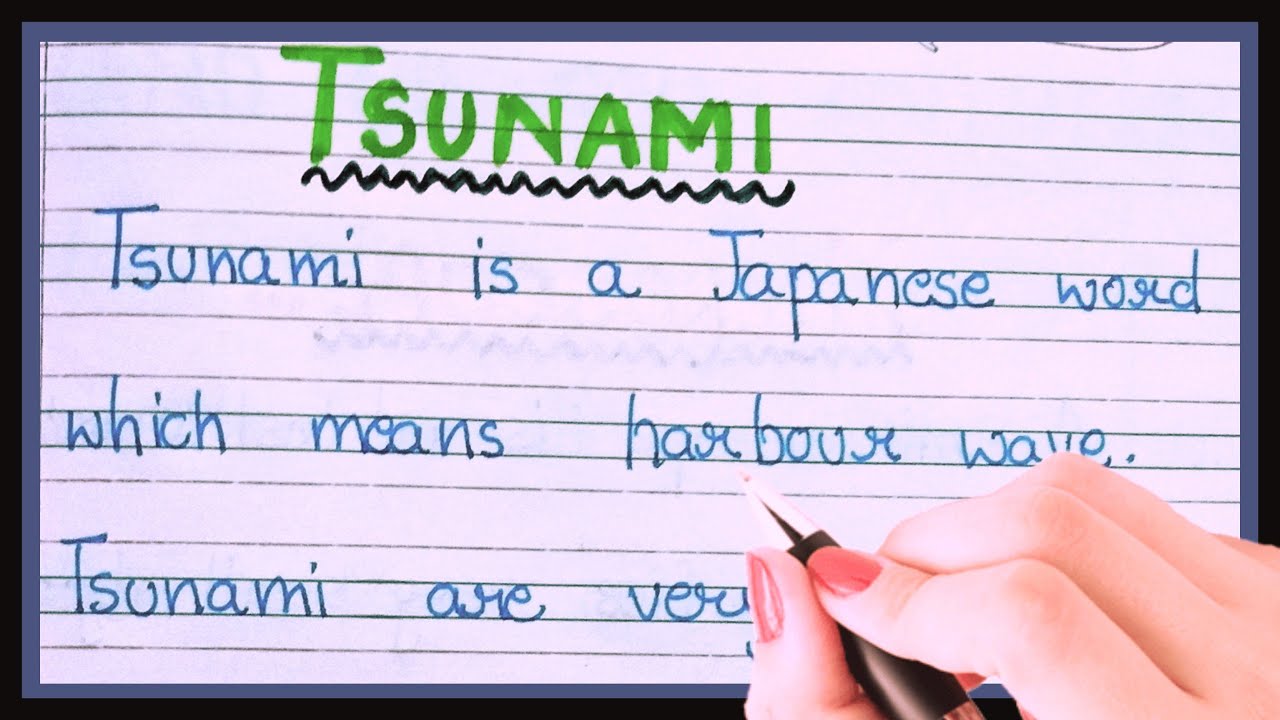 TSUNAMI
Tsunami is a Japanese word
which means harbour wave.
Tsunami are very